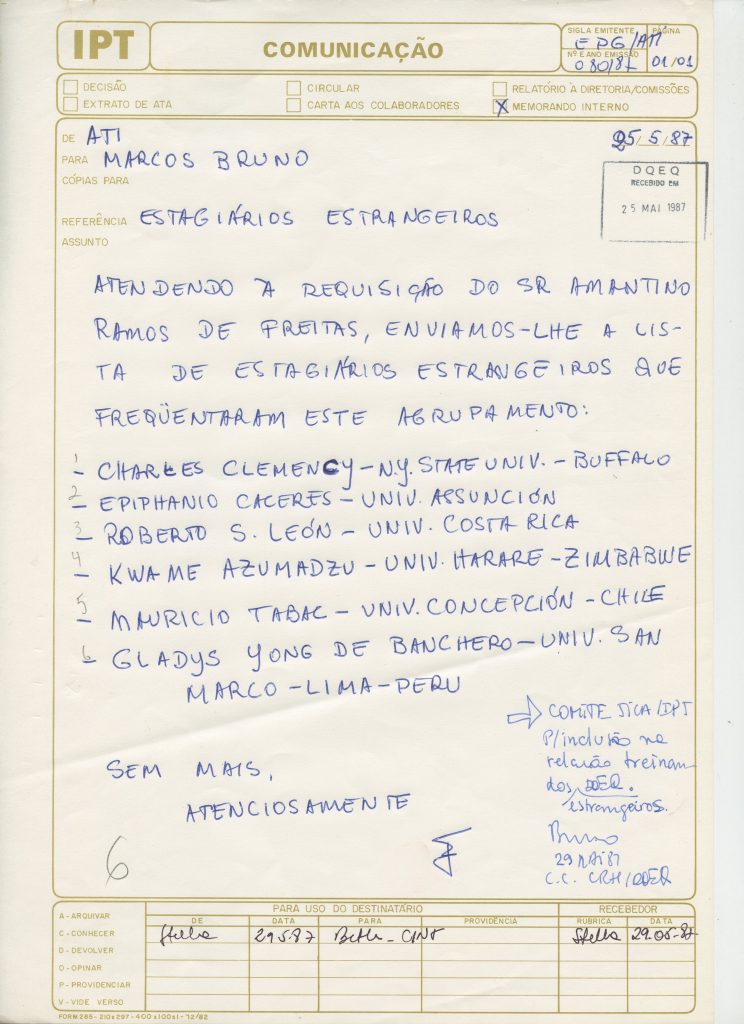 IPT
COMUNICAÇÃO
SIGLA EMITENTE
EPG/ATI
PÁGINA
Nº E ANO EMISSÃO
080/87
01/01
DECISÃO
CIRCULAR
RELATÓRIO À DIRETORIA/COMISSÕES
EXTRATO DE ATA
CARTA AOS COLABORADORES
X MEMORANDO INTERNO
DE ATI
25/5/87
PARA MARCOS BRUNO
CÓPIAS PARA
DQEQ
RECEBIDO EM
25 MAI 1987
REFERÊNCIA ESTAGIÁRIOS ESTRANGEIROS
ASSUNTO
ATENDENDO À REQUISIÇÃO DO SR AMANTINO
RAMOS DE FREITAS, ENVIAMOS-LHE A LIS-
TA DE ESTAGIÁRIOS ESTRANGEIROS QUE
FREQÜENTARAM ESTE AGRUPAMENTO:
1 - CHARLES CLEMENCY - N.Y. STATE UNIV. - BUFFALO
2 - EPIPHANIO CACERES - UNIV. ASSUNCIÓN
3 - ROBERTO S. LEÓN - UNIV. COSTA RICA
4 - KWAME AZUMADZU - UNIV. HARARE - ZIMBABWE
5 - MAURICIO TABAC - UNIV. CONCEPCIÓN - CHILE
6 - GLADYS YONG DE BANCHERO - UNIV. SAN
MARCO - LIMA - PERU
SEM MAIS,
ATENCIOSAMENTE
6
COMITE JICA/IPT
P/inclusão na
relação treinan
dos DDER.
estrangeiros.
Bruno
29 MAI 87
C.C. CRH/DDER
PARA USO DO DESTINATÁRIO
RECEBEDOR
A - ARQUIVAR
DE
DATA
PARA
PROVIDÊNCIA
RUBRICA
DATA
C - CONHECER
Stella
29.5.87
Beth - CINT
Stella
29.05.87
D - DEVOLVER
O - OPINAR
P - PROVIDENCIAR
V - VIDE VERSO
FORM 285 - 210 x 297 - 400 x 100 x 1 - 12/82